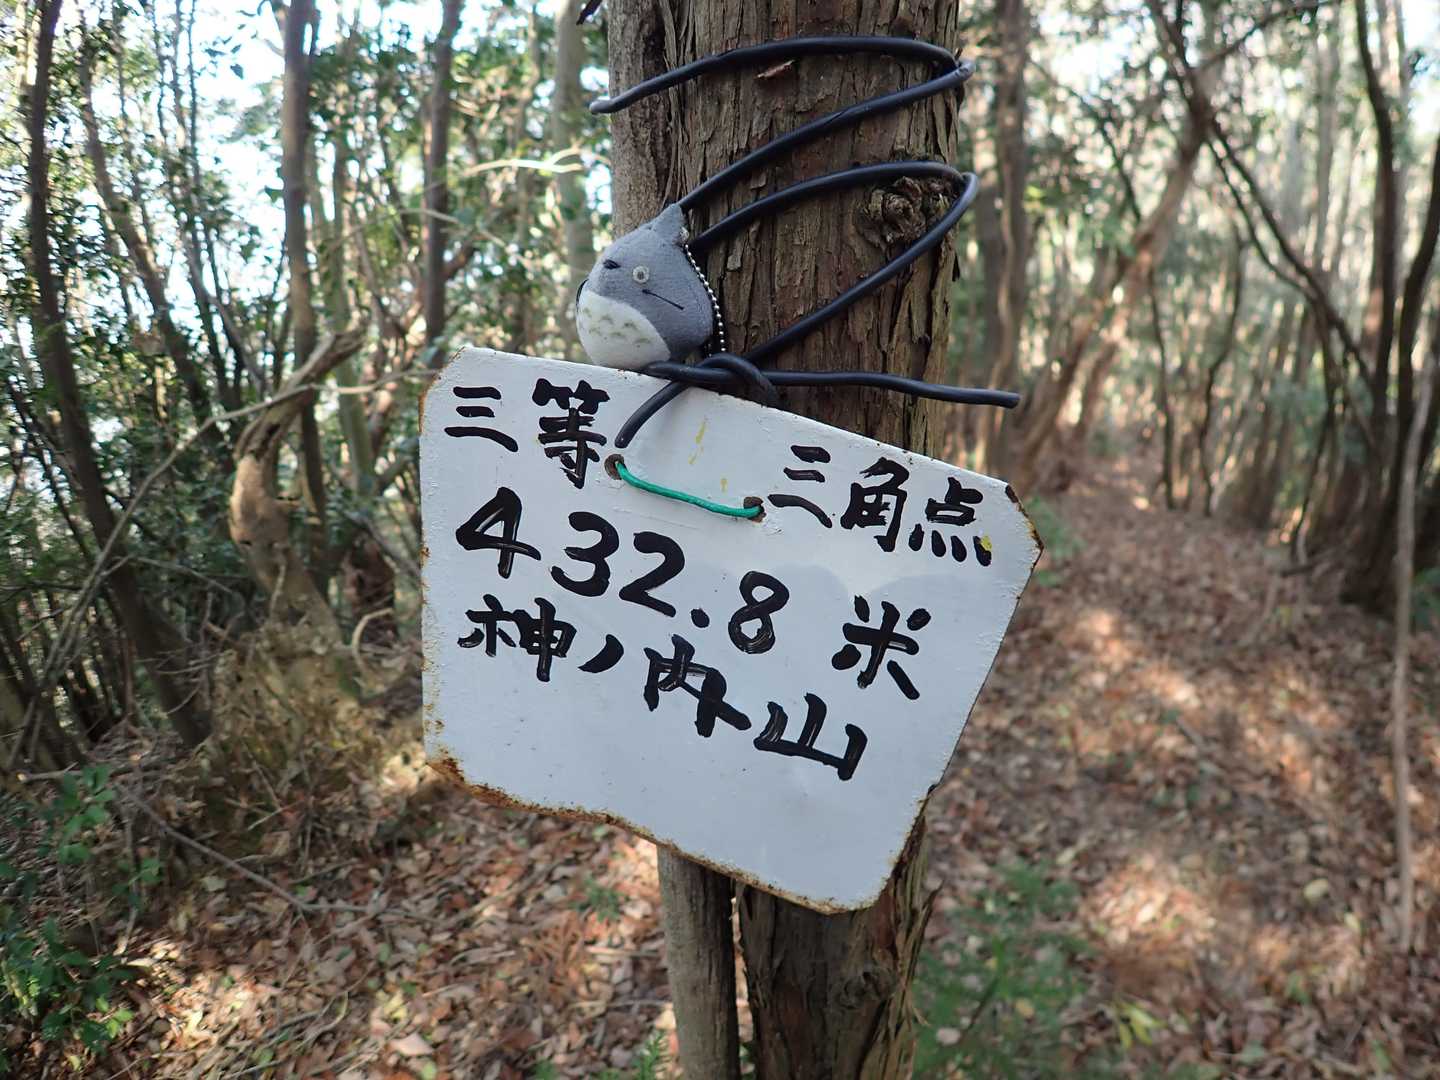 三等 三角点
432.8 米
神ノ内山